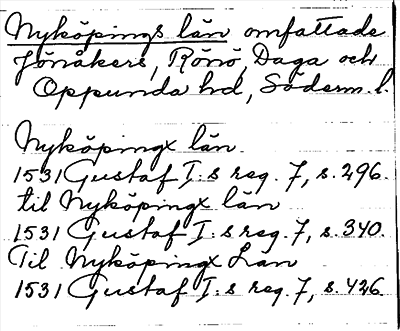 Nyköpings län omfattade
Jönåkers, Rönö, Daga och
Oppunda hd, Söderm. l.
Nyköpingx län.
1531 Gustaf I:s reg. 7, s. 296.
til Nyköpingx län
1531 Gustaf I:s reg. 7, s. 340.
Til Nyköpingx Län
1531 Gustaf I:s reg. 7, s. 426.